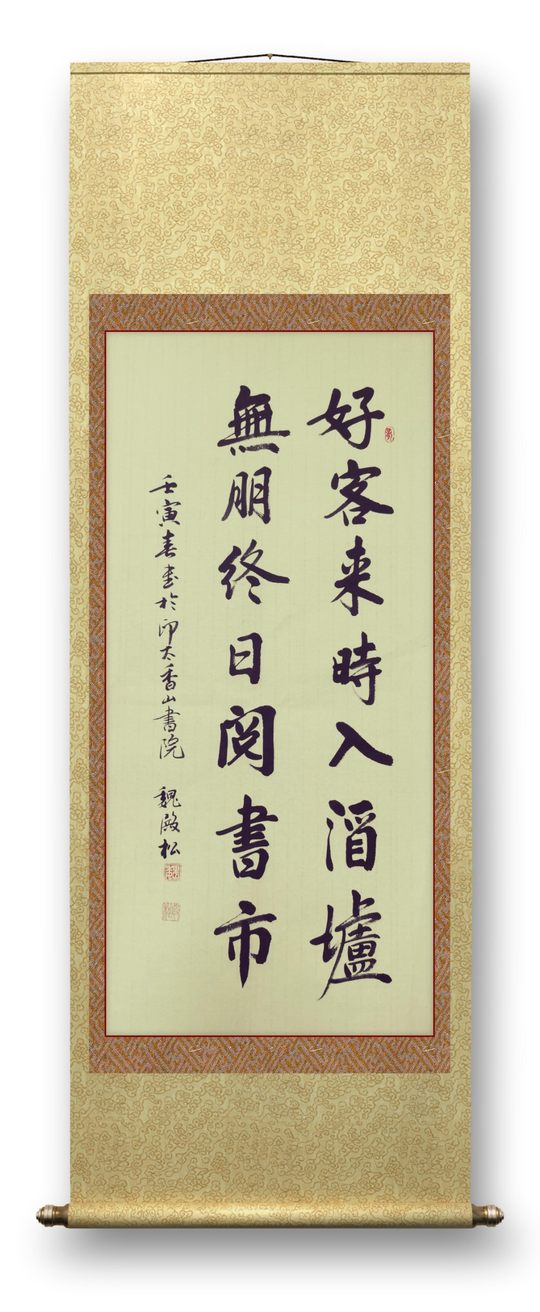 好客来時入酒壚
無朋終日閱書市
壬寅春書於印太香山書院 魏殿松